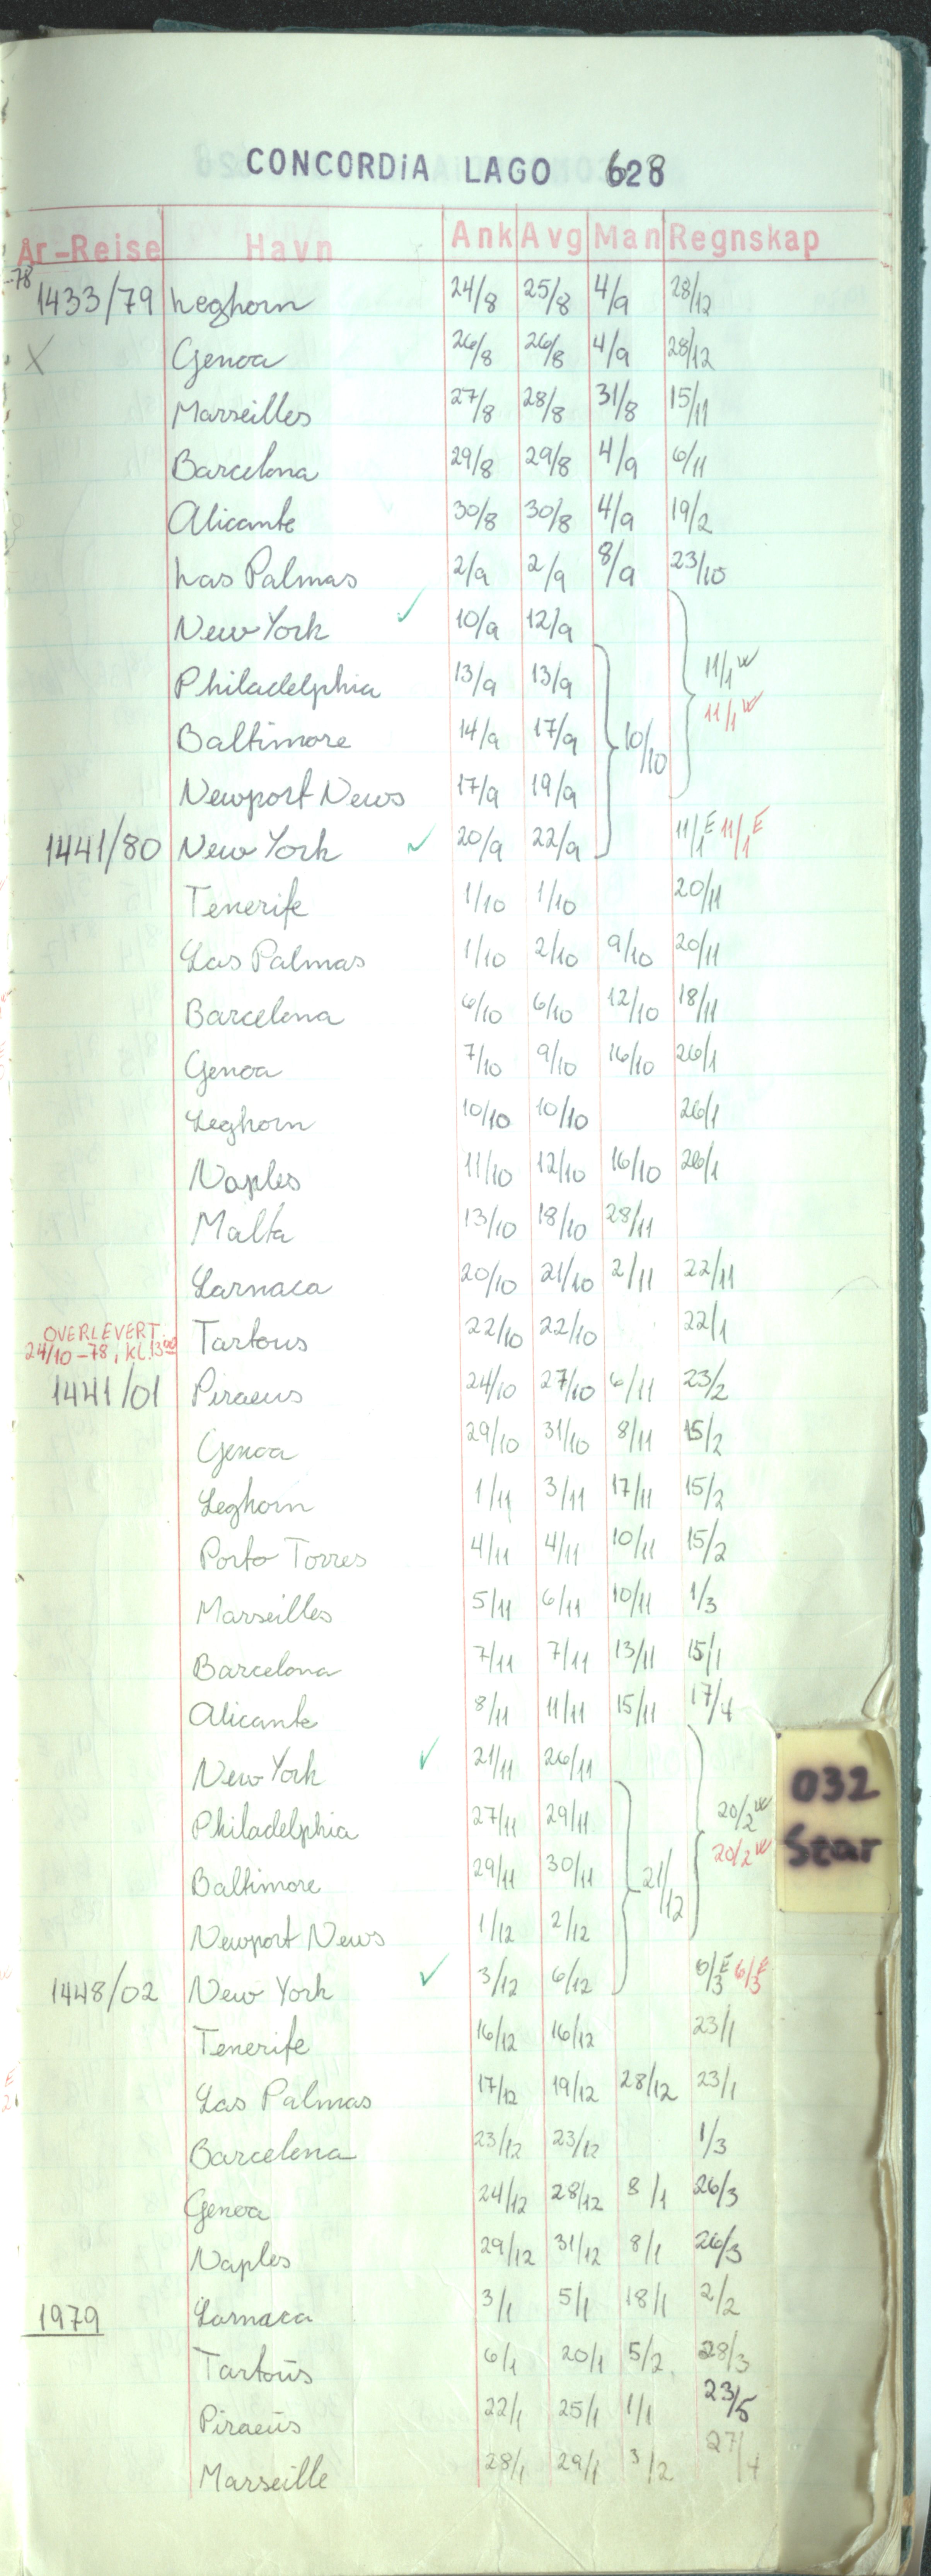 CONCORDIA LAGO 628
År-Reise Havn Ank Avg Man Regnskap
-78
1433/79 Leghorn 24/8 25/8 4/9 28/12
X Genoa 26/8 26/8 4/9 28/12
Marseilles 27/8 28/8 31/8 15/11
Barcelona 29/8 29/8 4/9 6/11
Alicante 30/8 30/8 4/9 19/2
Las Palmas 2/9 2/9 8/9 23/10
New York ✓ 10/9 12/9
Philadelphia 13/9 13/9 11/1 W
11/1 W
Baltimore 14/9 17/9 10/10
Newport News 17/9 19/9
1441/80 New York ✓ 20/9 22/9 11/1 E 11/1 E
Tenerife 1/10 1/10 20/11
Las Palmas 1/10 2/10 9/10 20/11
Barcelona 6/10 6/10 12/10 18/11
Genoa 7/10 9/10 16/10 26/1
Leghorn 10/10 10/10 26/1
Naples 11/10 12/10 16/10 26/1
Malta 13/10 18/10 28/11
Larnaca 20/10 21/10 2/11 22/11
OVERLEVERT
24/10-78, kl. 13 00
Tartous 22/10 22/10 22/1
1441/01 Piraeus 24/10 27/10 6/11 23/2
Genoa 29/10 31/10 8/11 15/2
Leghorn 1/11 3/11 17/11 15/2
Porto Torres 4/11 4/11 10/11 15/2
Marseilles 5/11 6/11 10/11 1/3
Barcelona 7/11 7/11 13/11 15/1
Alicante 8/11 11/11 15/11 17/4
New York ✓ 21/11 26/11
Philadelphia 27/11 29/11 20/2 W
20/2 W
Baltimore 29/11 30/11 21/12
Newport News 1/12 2/12
1448/02 New York ✓ 3/12 6/12 6/3 E 6/3 E
Tenerife 16/12 16/12 23/1
Las Palmas 17/12 19/12 28/12 23/1
Barcelona 23/12 23/12 1/3
Genoa 24/12 28/12 8/1 26/3
Naples 29/12 31/12 8/1 26/3
1979 Larnaca 3/1 5/1 18/1 2/2
Tartoūs 6/1 20/1 5/2 28/3
Piraeūs 22/1 25/1 1/1 23/5
Marseille 28/1 29/1 3/2 27/4
032
Star